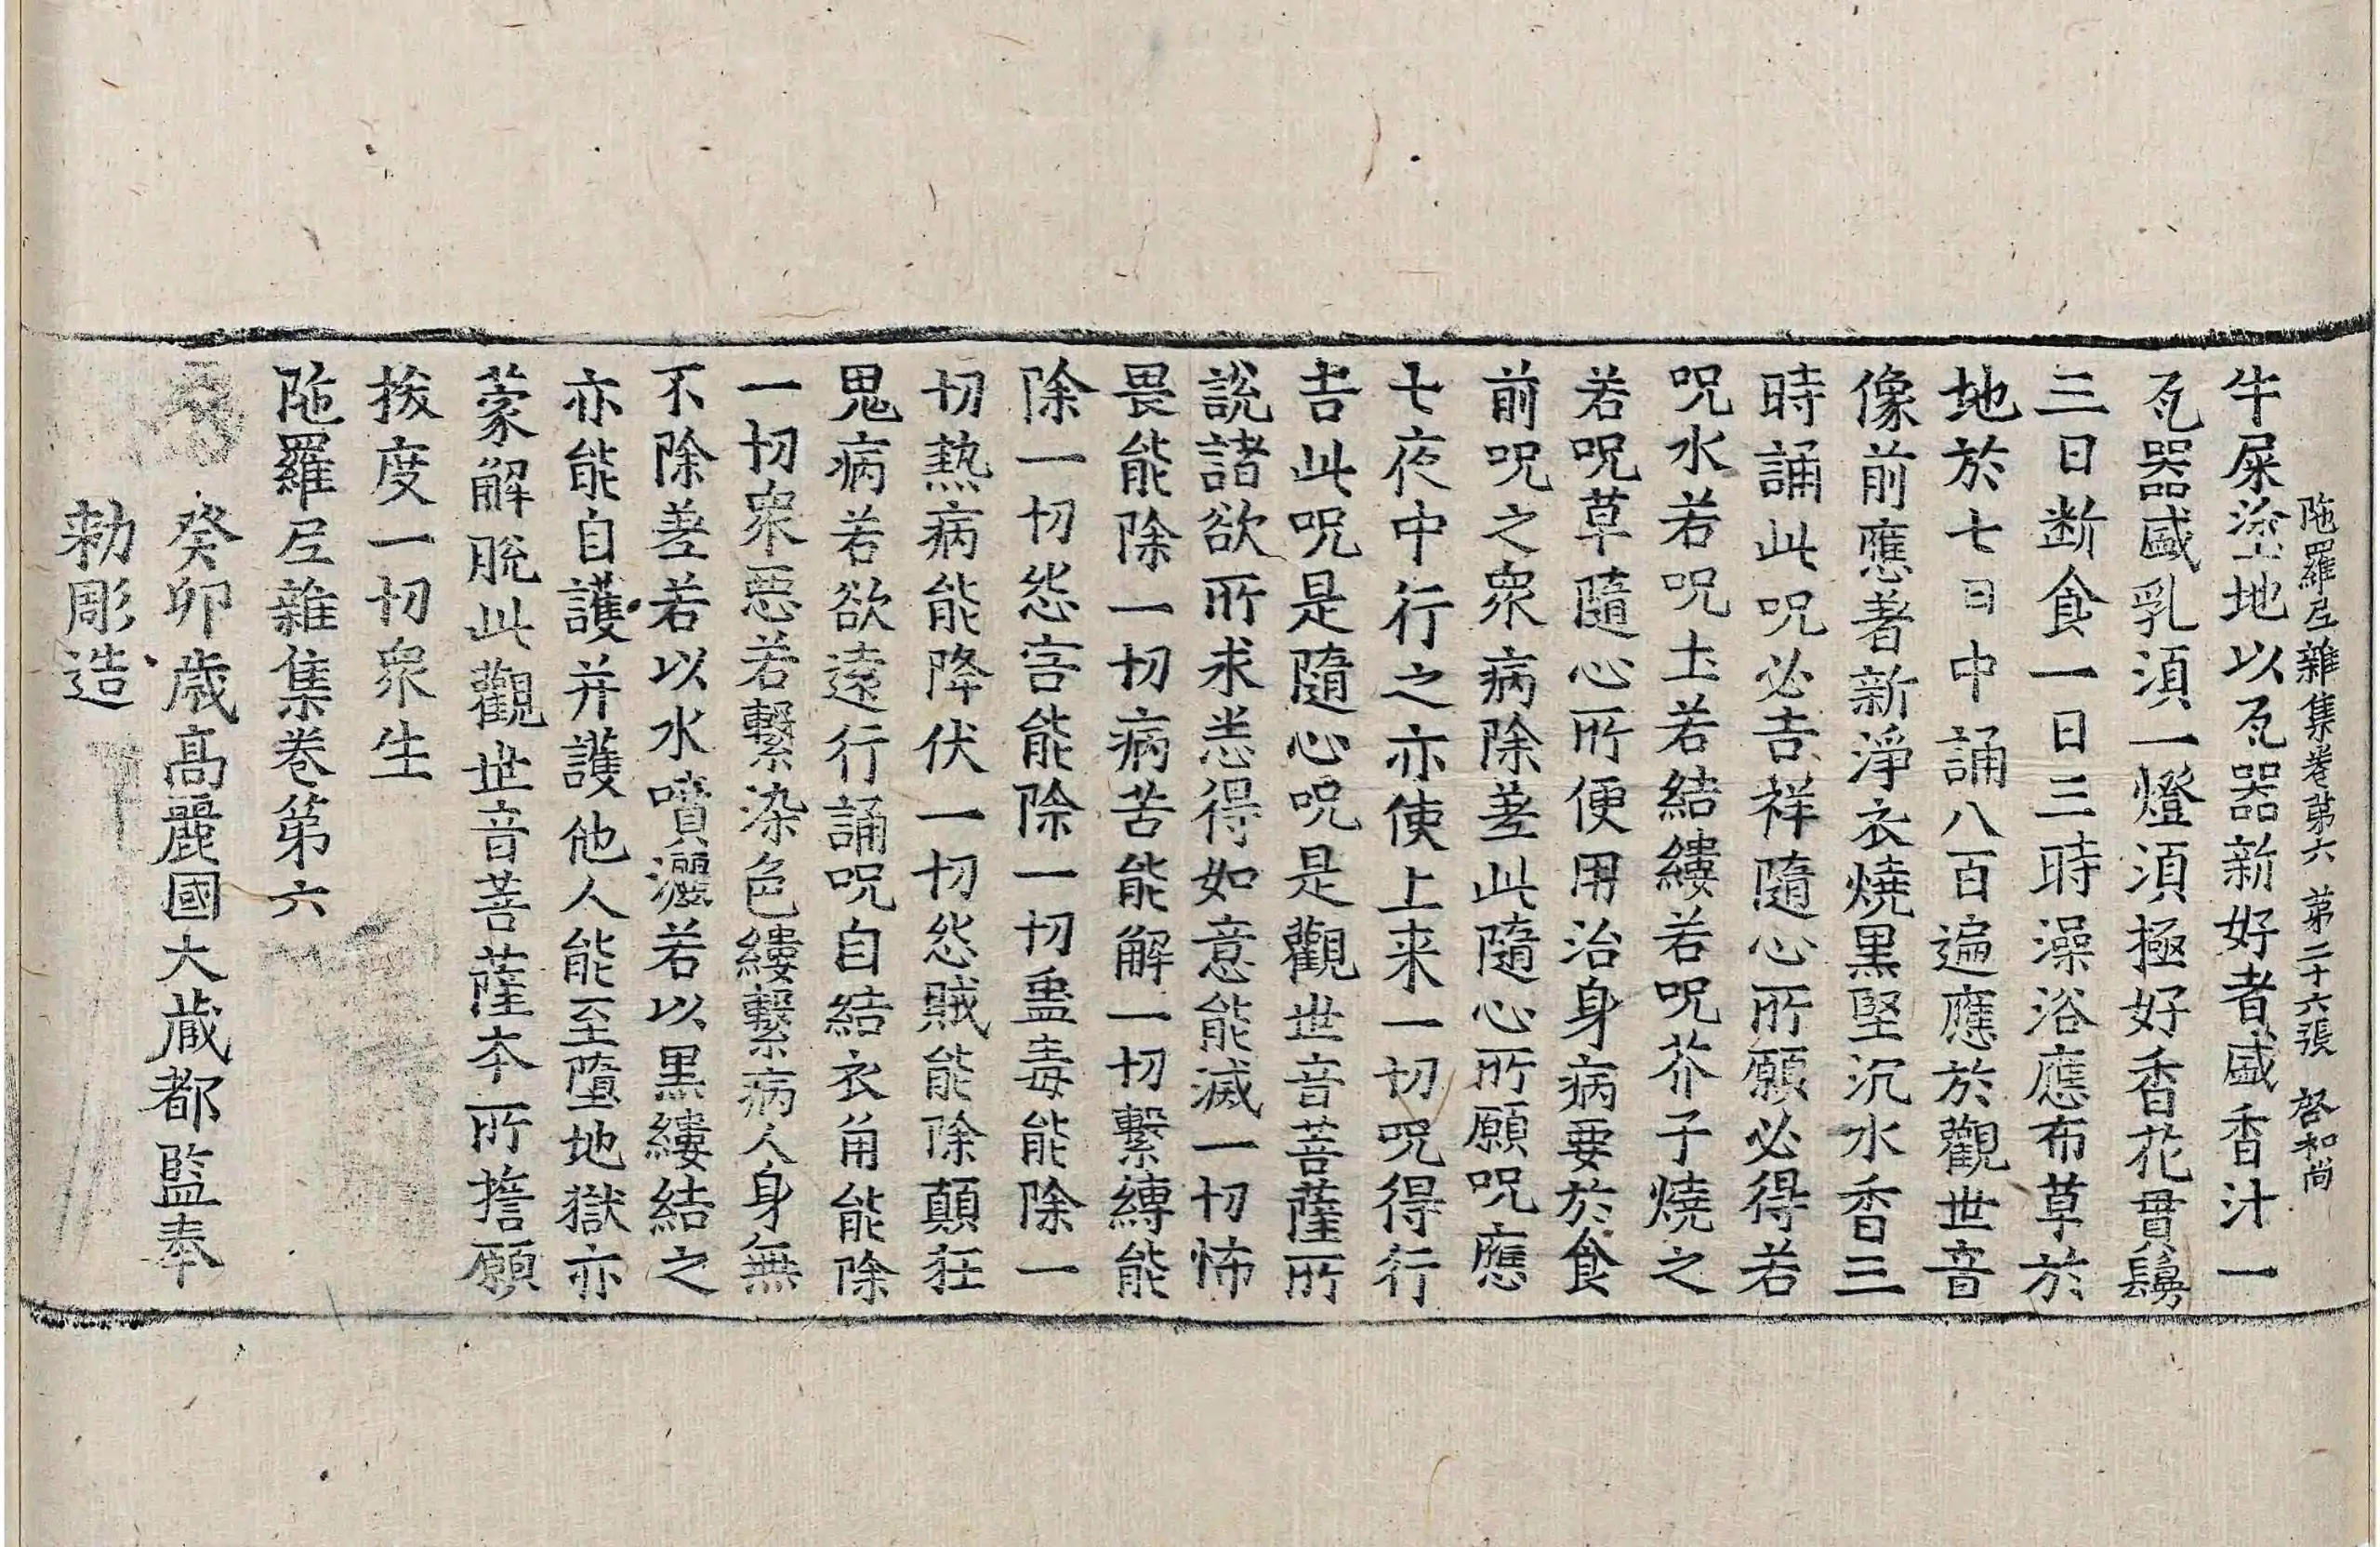 陁羅尼雜集卷第六 第二十六張 啓和尚
牛屎塗地以瓦器新好者盛香汁一
瓦器盛乳湏一燈湏極好香花貫鬘
三日断食一日三時澡浴應布草於
地於七日中誦八百遍應於觀世音
像前應著新淨衣燒黒堅沉水香三
時誦此呪必吉祥隨心所願必得若
呪水若呪土若結縷若呪芥子燒之
若呪草隨心所便用治身病要於食
前呪之衆病除差此隨心所願呪應
七夜中行之亦使上来一切呪得行
吉此呪是隨心呪是觀世音菩薩所
說諸欲所求悉得如意能滅一切怖
畏能除一切病苦能解一切繫縛能
除一切怨害能除一切蠱毒能除一
切熱病能降伏一切怨賊能除顛狂
鬼病若欲遠行誦呪自結衣角能除
一切衆惡若繫染色縷繫病人身無
不除差若以水噴灑若以黒縷結之
亦能自護并護他人能至墮地獄亦
蒙解脫此觀世音菩薩夲所誓願
拔度一切衆生
陁羅尼雜集卷第六
癸卯歳高麗國大藏都監奉
勑彫造